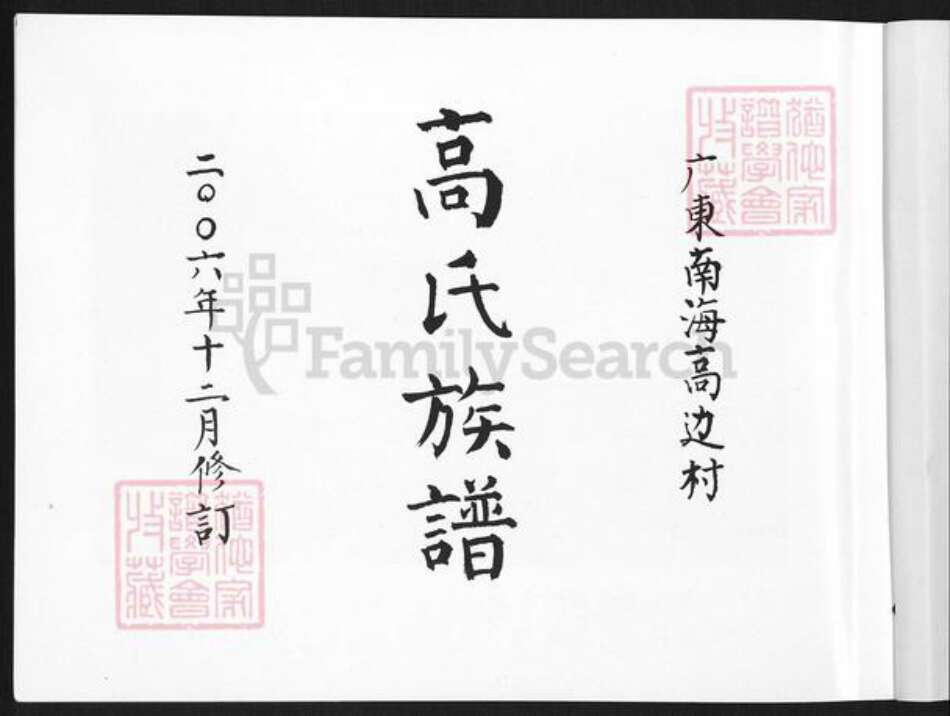 广東南海高边村
高氏族譜
二〇〇六年十二月修訂
猶他家
譜學會
收藏
猶他家
譜學會
收藏
FamilySearch